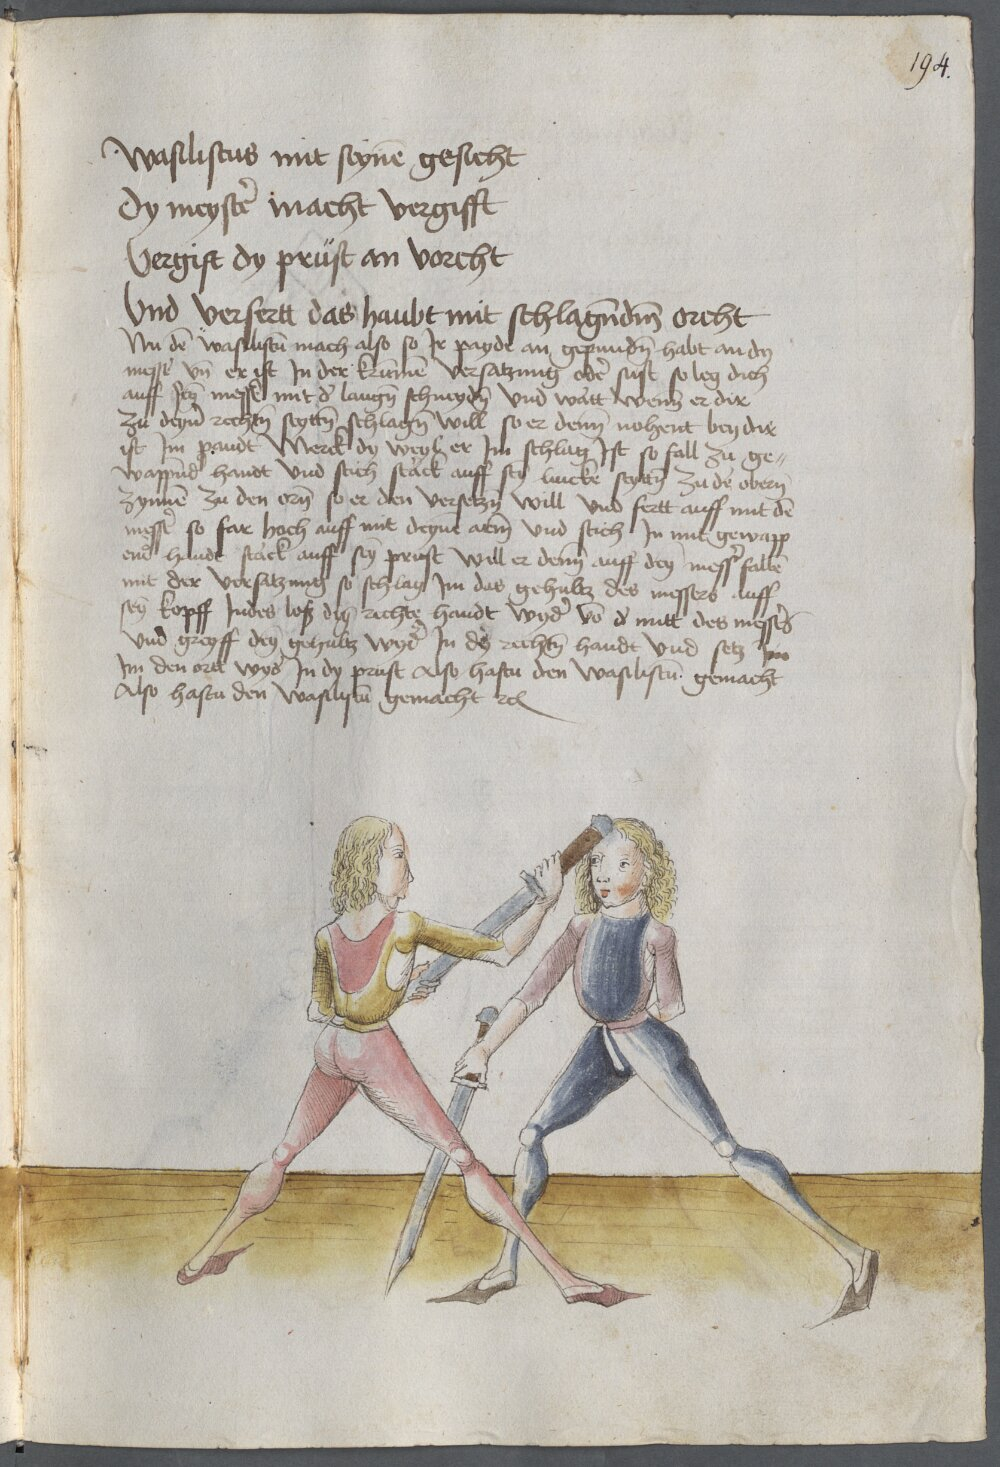 194.
Wasiliscus mit seynē gesicht
Dy meystē macht vergifft
Vergift dy prüst an vorcht
Und versertt das haubt mit schlagn̄dm̄ orcht
Nu dē wasiliscū mach also so Ir payde an gepundn̄ habt an dy
messr̄ un̄ er ist In der krūmē versatzung oder sust so leg dich
auff seyn messer mit d' langn̄ schneydn̄ und watt wenn er dir
zu deynr̄ rechtn̄ seyttn̄ schlagn̄ will so er denn nohent bey dir
ist Im pandt Merck dy weyl er Im schlag Ist so fall zu ge„
wappndr̄ handt und stich starck auff sey lincke seyttn̄ zu dē obern̄
zynnē zu den orn̄ so er den versetzn̄ will und fertt auff mit dē
messr̄ so far hoch auff mit deynē arm̄ und stich In mit gewapp
enr̄ handt starck auff sey prust will er denn auff den messr̄ fallē
mit der versatzung so schlag Im das gehultz des messers auff
sey kopff Indes loß dyn̄ rechte handt wydr̄ vō d' mitt des messrs̄
und greyff dey gehultz wydr̄ In dy rechtn̄ handt und setz
Im den ortt wydr̄ In dy prust Also hastu den wasiliscū gemacht
Also hastu den wasiliscū gemacht rc